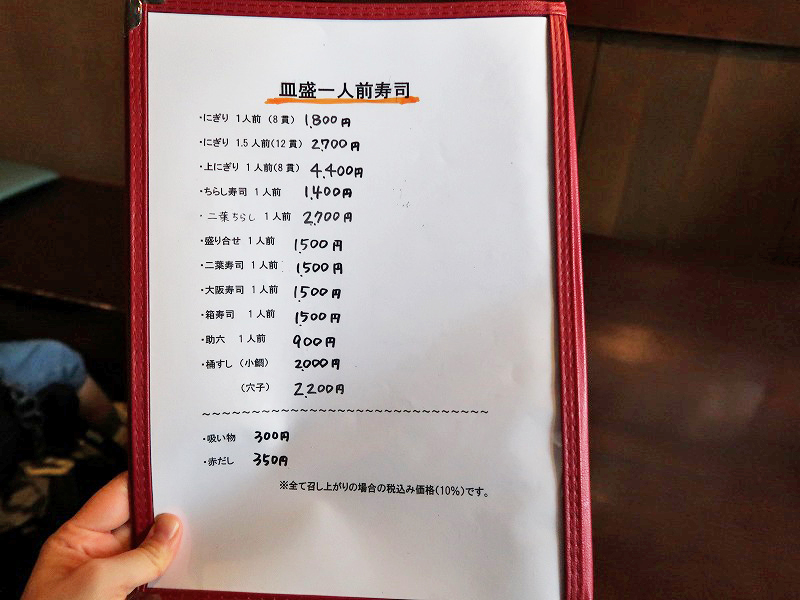 皿盛一人前寿司
・にぎり 1人前 (8貫) 1,800円
・にぎり 1.5人前(12貫) 2,700円
・上にぎり 1人前(8貫) 4,400円
・ちらし寿司 1人前 1,400円
・二葉ちらし 1人前 2,700円
・盛り合せ 1人前 1,500円
・二葉寿司 1人前 1,500円
・大阪寿司 1人前 1,500円
・箱寿司 1人前 1,500円
・助六 1人前 900円
・桶すし (小鯛) 2,000円
(穴子) 2,200円
~~~~~~~~~~~~~~~~~~~~~~~~~~~~~
・吸い物 300円
・赤だし 350円
※全て召し上がりの場合の税込み価格(10%)です。